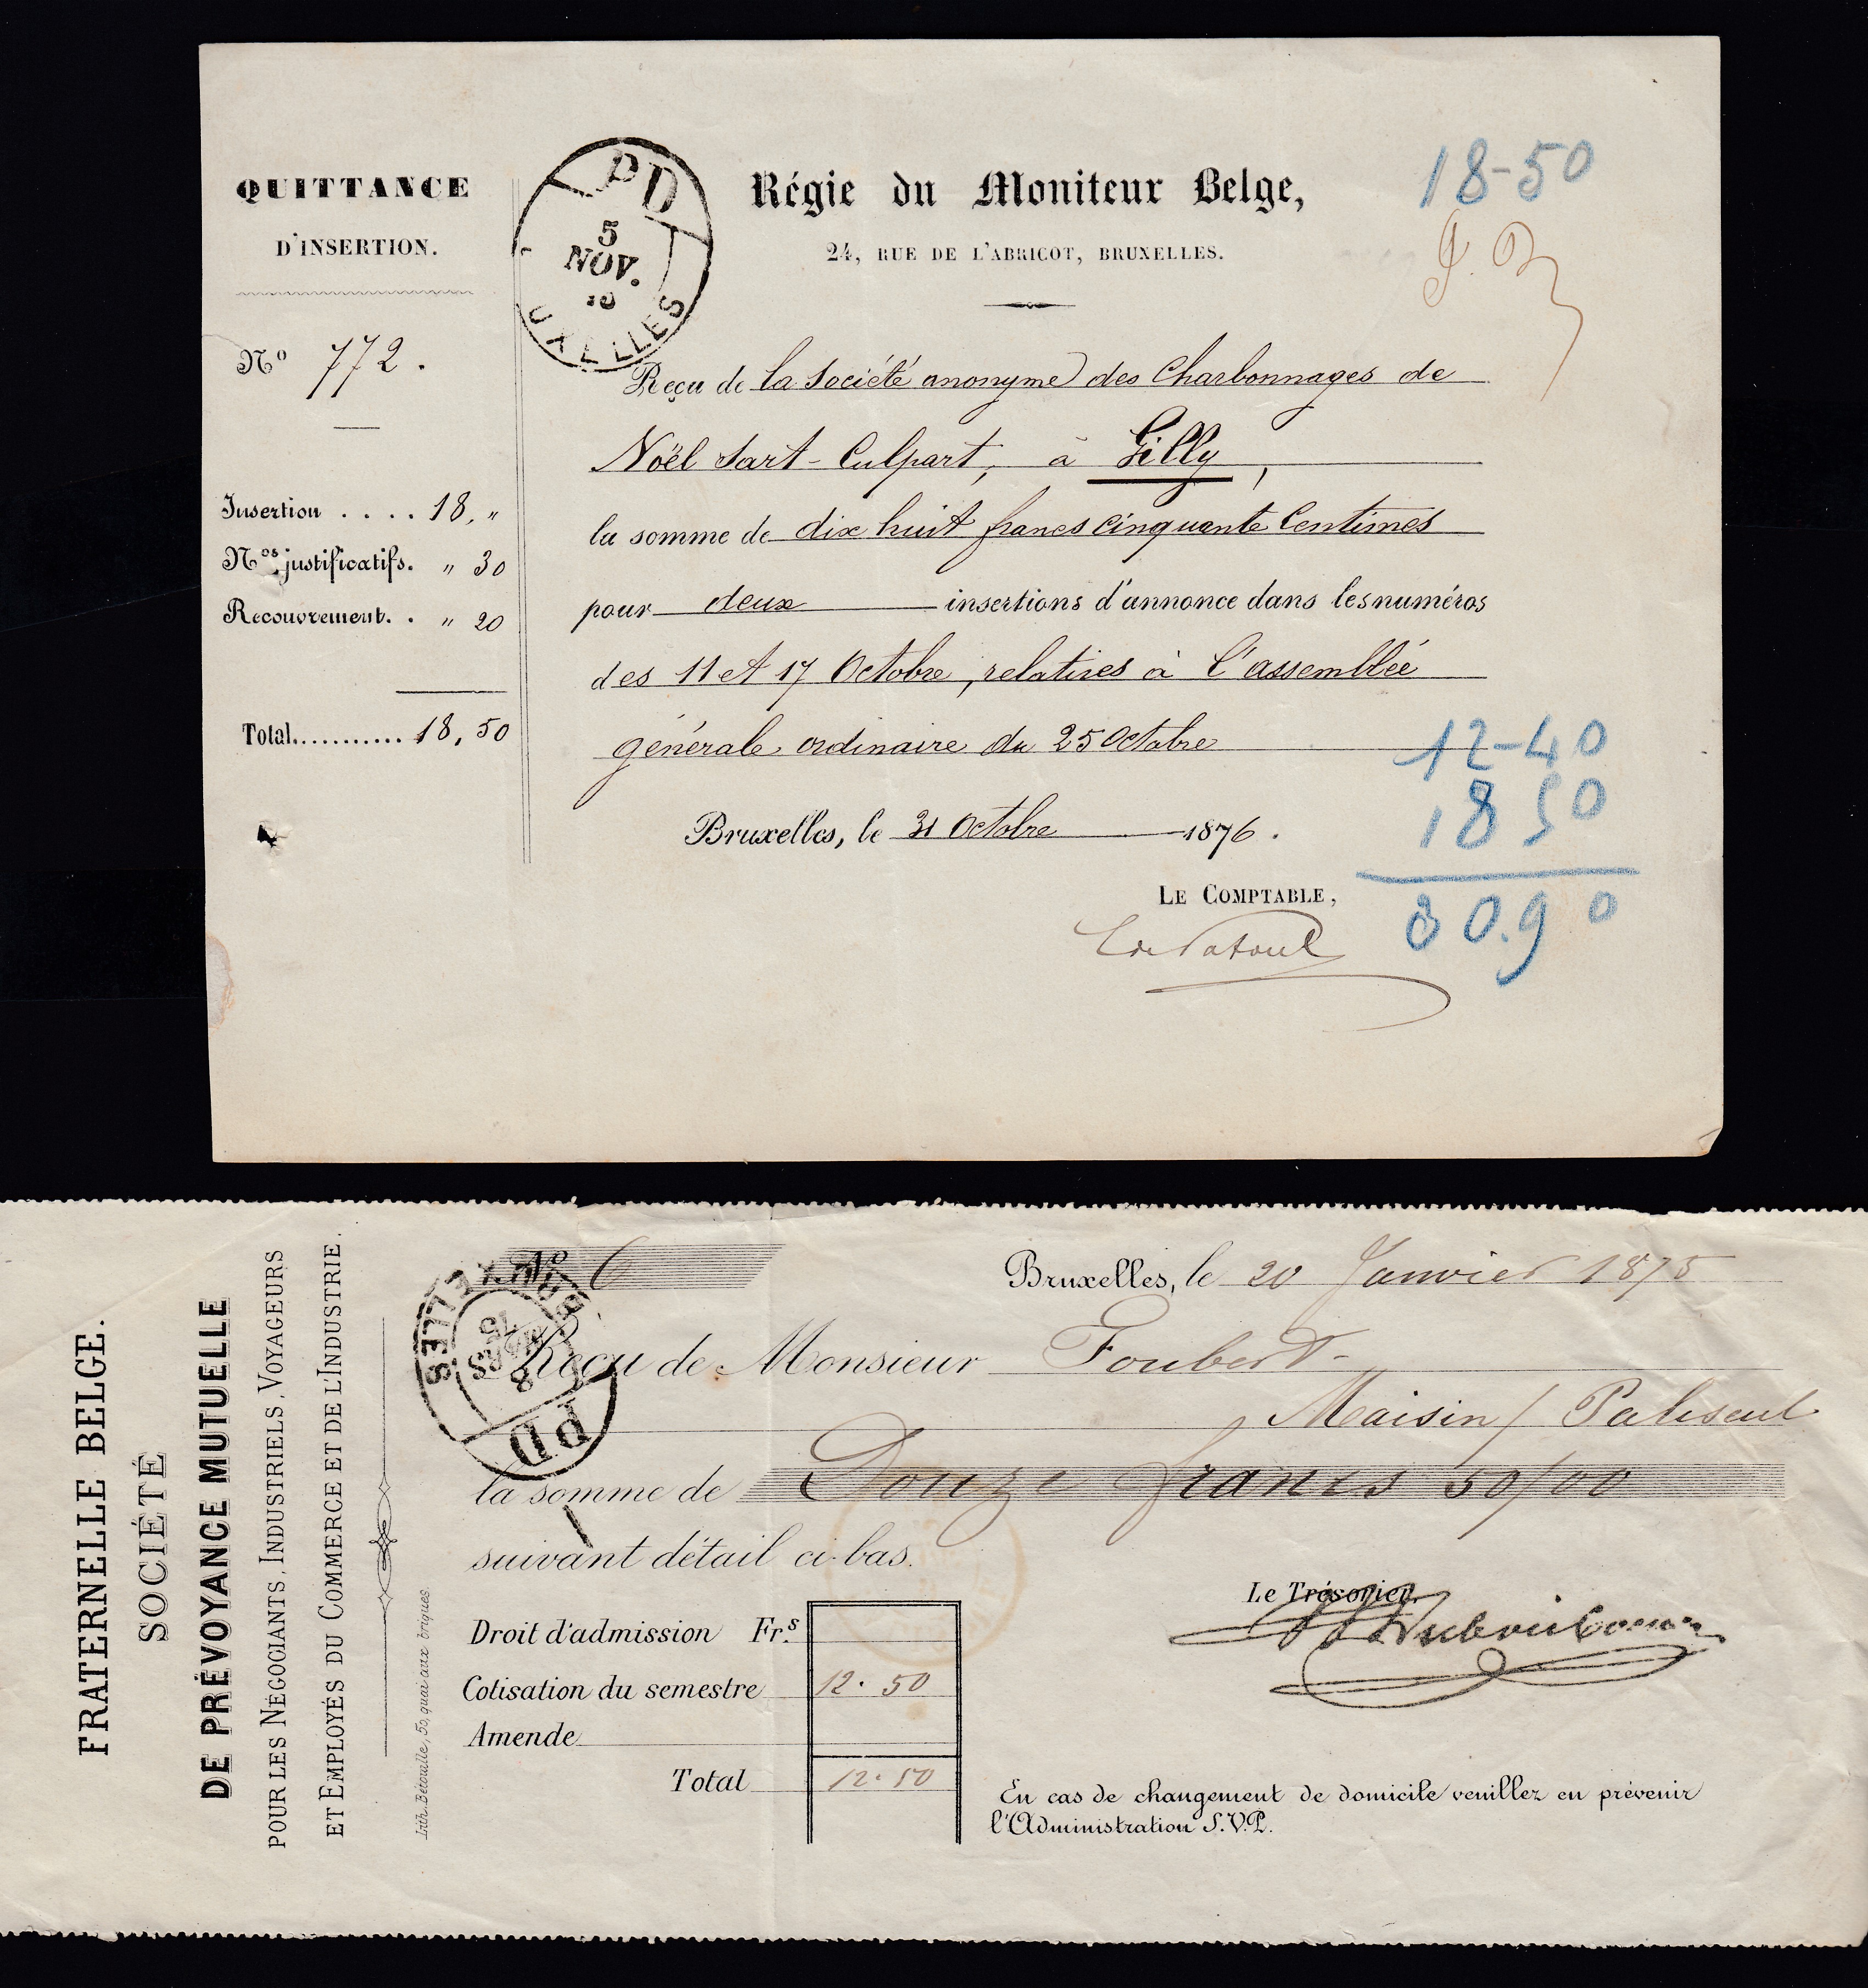 QUITTANCE
D'INSERTION.
Nº 772.
Insertion .... 18, "
Nos justificatifs. " 30
Recouvrement. . " 20
Total........... 18,50
PD
5
NOV.
UXELLES
Régie du Moniteur Belge,
24, RUE DE L'ABRICOT, BRUXELLES.
18-50
Reçu de la Société anonyme des Charbonnages de
Noël Sart-Culpart, à Gilly,
la somme de dix huit francs cinquante Centimes
pour deux insertions d'annonce dans les numéros
des 11 et 17 Octobre, relatives à l'assemblée
générale ordinaire du 25 Octobre
Bruxelles, le 31 Octobre 1876.
LE COMPTABLE,
12-40
18 50
30.90
FRATERNELLE BELGE.
SOCIÉTÉ
DE PRÉVOYANCE MUTUELLE
POUR LES NÉGOCIANTS, INDUSTRIELS, VOYAGEURS
ET EMPLOYÉS DU COMMERCE ET DE L'INDUSTRIE.
Lith. Bétouille, 50, quai aux briques
Nº 6
BRUXELLES
MARS
75
PD
Bruxelles, le 20 Janvier 1875
Reçu de Monsieur Foubert
Maisin / Paliseul
la somme de Douze francs 50/00
suivant détail ci-bas.
Le Trésorier,
Droit d'admission Frs
Cotisation du semestre 12.50
Amende
Total 12.50
En cas de changement de domicile veuillez en prévenir
l'Administration S.V.P.